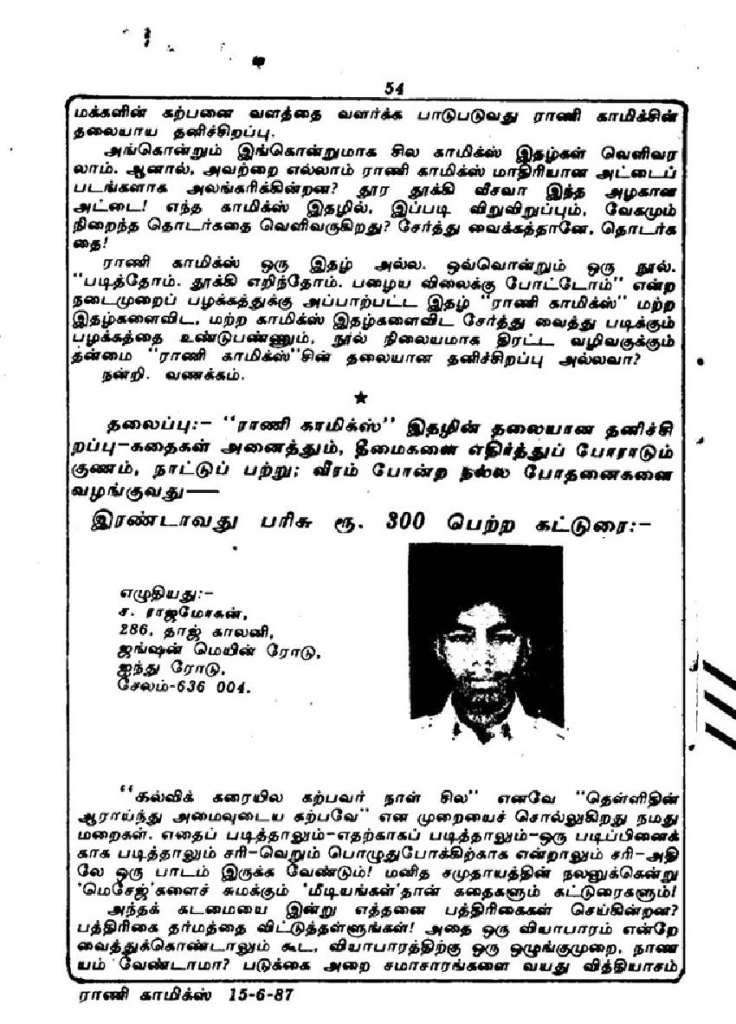 54
மக்களின் கற்பனை வளத்தை வளர்க்க பாடுபடுவது ராணி காமிக்சின்
தலையாய தனிச்சிறப்பு.
அங்கொன்றும் இங்கொன்றுமாக சில காமிக்ஸ் இதழ்கள் வெளிவர
லாம். ஆனால், அவற்றை எல்லாம் ராணி காமிக்ஸ் மாதிரியான அட்டைப்
படங்களாக அலங்கரிக்கின்றன? தூர தூக்கி வீசவா இந்த அழகான
அட்டை! எந்த காமிக்ஸ் இதழில், இப்படி விறுவிறுப்பும், வேகமும்
நிறைந்த தொடர்கதை வெளிவருகிறது? சேர்த்து வைக்கத்தானே, தொடர்க
தை!
ராணி காமிக்ஸ் ஒரு இதழ் அல்ல. ஒவ்வொன்றும் ஒரு நூல்.
"படித்தோம். தூக்கி எறிந்தோம். பழைய விலைக்கு போட்டோம்" என்ற
நடைமுறைப் பழக்கத்துக்கு அப்பாற்பட்ட இதழ் "ராணி காமிக்ஸ்" மற்ற
இதழ்களைவிட, மற்ற காமிக்ஸ் இதழ்களைவிட சேர்த்து வைத்து படிக்கும்
பழக்கத்தை உண்டுபண்ணும், நூல் நிலையமாக திரட்ட வழிவகுக்கும்
தன்மை "ராணி காமிக்ஸ்"சின் தலையான தனிச்சிறப்பு அல்லவா?
நன்றி. வணக்கம்.
★
தலைப்பு:– "ராணி காமிக்ஸ்" இதழின் தலையான தனிச்சி
றப்பு–கதைகள் அனைத்தும், தீமைகளை எதிர்த்துப் போராடும்
குணம், நாட்டுப் பற்று; வீரம் போன்ற நல்ல போதனைகளை
வழங்குவது—
இரண்டாவது பரிசு ரூ. 300 பெற்ற கட்டுரை:–
எழுதியது:–
ச. ராஜமோகன்,
286, தாஜ் காலனி,
ஜங்ஷன் மெயின் ரோடு,
ஐந்து ரோடு,
சேலம்-636 004.
"கல்விக் கரையில கற்பவர் நாள் சில" எனவே "தெள்ளிதின்
ஆராய்ந்து அமைவுடைய கற்பவே" என முறையைச் சொல்லுகிறது நமது
மறைகள். எதைப் படித்தாலும்–எதற்காகப் படித்தாலும்–ஒரு படிப்பினைக்
காக படித்தாலும் சரி–வெறும் பொழுதுபோக்கிற்காக என்றாலும் சரி–அதி
லே ஒரு பாடம் இருக்க வேண்டும்! மனித சமுதாயத்தின் நலனுக்கென்று
'மெசேஜ்'களைச் சுமக்கும் 'மீடியங்கள்'தான் கதைகளும் கட்டுரைகளும்!
அந்தக் கடமையை இன்று எத்தனை பத்திரிகைகள் செய்கின்றன?
பத்திரிகை தர்மத்தை விட்டுத்தள்ளுங்கள்! அதை ஒரு வியாபாரம் என்றே
வைத்துக்கொண்டாலும் கூட, வியாபாரத்திற்கு ஒரு ஒழுங்குமுறை, நாண
யம் வேண்டாமா? படுக்கை அறை சமாசாரங்களை வயது வித்தியாசம்
ராணி காமிக்ஸ் 15-6-87